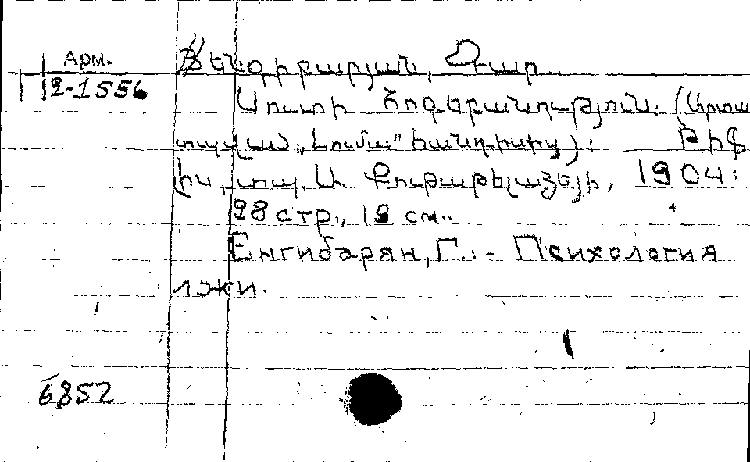 Арм.
2-1556
Ենգիբարյան, Գևար
Ստտի հոգեբանություն. (Արտա
տպված „Լումա" հանդիսից): Թիֆ
լիս, տպ. Ա. Քութաթելաձեյի, 1904:
28 стр., 19 см..
Енгибарян, Г.: - Психология
лжи.
6852